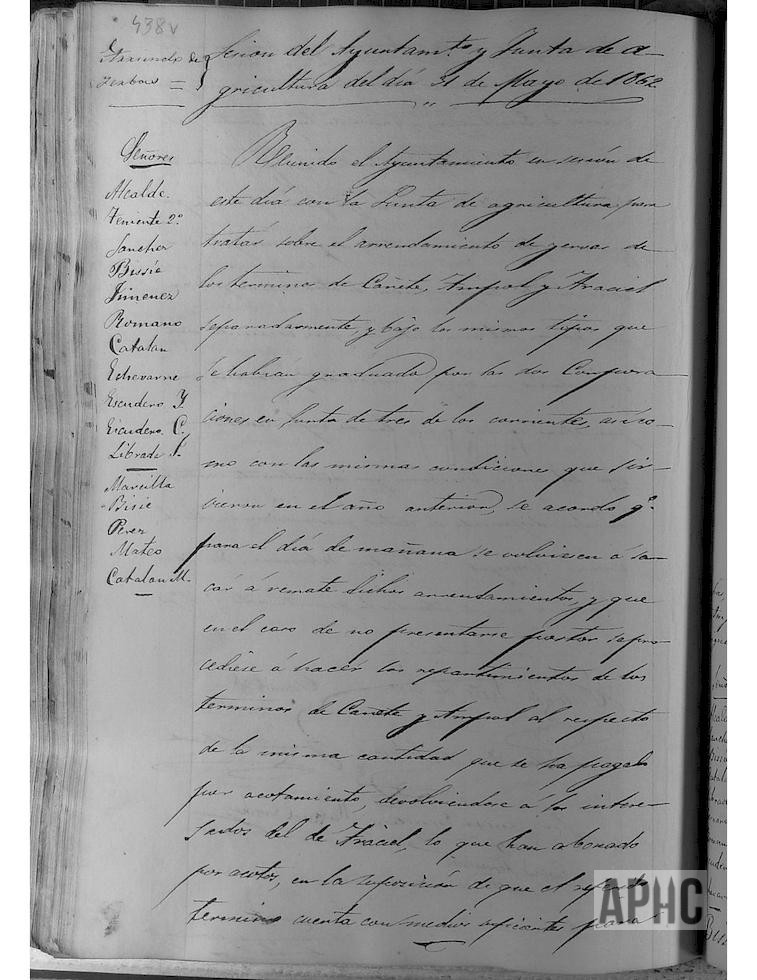 438v
Sesion del Ayuntamto. y Junta de a-
gricultura del día 31 de Mayo de 1862
Arriendo de
yerbas =
Señores
Alcalde.
Teniente 2º
Sanchez
Bissié
Jimenez
Romano
Catalan
Echevarne
Escudero Y
Escudero C.
Librada J.
Marcilla
Bisie
Perez
Mateo
Catalan M.
Reunido el Ayuntamiento en sesión de
este día con la Junta de agricultura para
tratar sobre el arrendamiento de yervas de
los terminos de Cañete, Ampol y Araciel
separadamente, y bajo los mismos tipos que
se habian graduado por las dos Corpora
ciones en Junta de tres de los corrientes, así co-
mo con las mismas condiciones que sir-
vieron en el año anterior, se acordó q.
para el día de mañana se volviesen á sa-
car á remate dichos arrendamientos, y que
en el caso de no presentarse postor se pro-
cediese á hacer los repartimientos de los
terminos de Cañete y Ampol al respecto
de la misma cantidad que se ha pagado
por acotamiento, devolviendose á los intere-
sados del de Araciel, lo que han abonado
por acotos, en la suposición de que el referido
termino cuenta con medios suficientes para
APHC